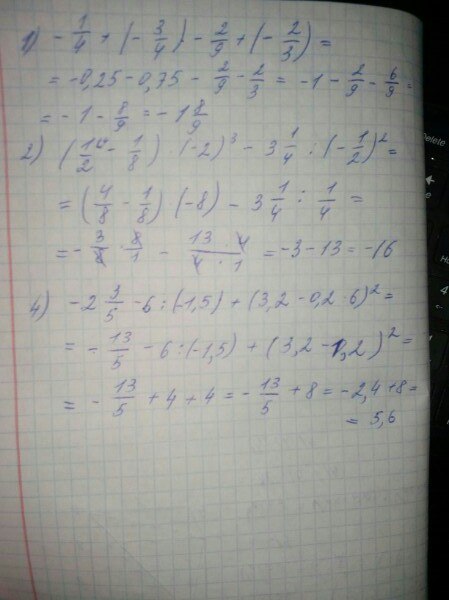 1) - 1/4 + (- 3/4) - 2/9 + (- 2/3) =
= -0,25 - 0,75 - 2/9 - 2/3 = -1 - 2/9 - 6/9 =
= -1 - 8/9 = -1 8/9
2) (1/2 - 1/8) · (-2)³ - 3 1/4 : (- 1/2)² =
= (4/8 - 1/8) (-8) - 3 1/4 : 1/4 =
= - 3/8 · 8/1 - 13 · 4/4 · 1 = -3 - 13 = -16
4) -2 3/5 - 6 : (-1,5) + (3,2 - 0,2 · 6)² =
= - 13/5 - 6 : (-1,5) + (3,2 - 1,2)² =
= - 13/5 + 4 + 4 = - 13/5 + 8 = -2,4 + 8 =
= 5,6
Delete